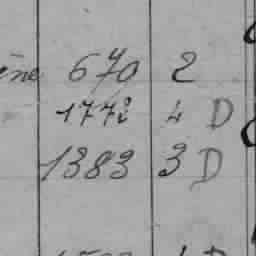 ine 670 2
1772 4 D
1383 3 D